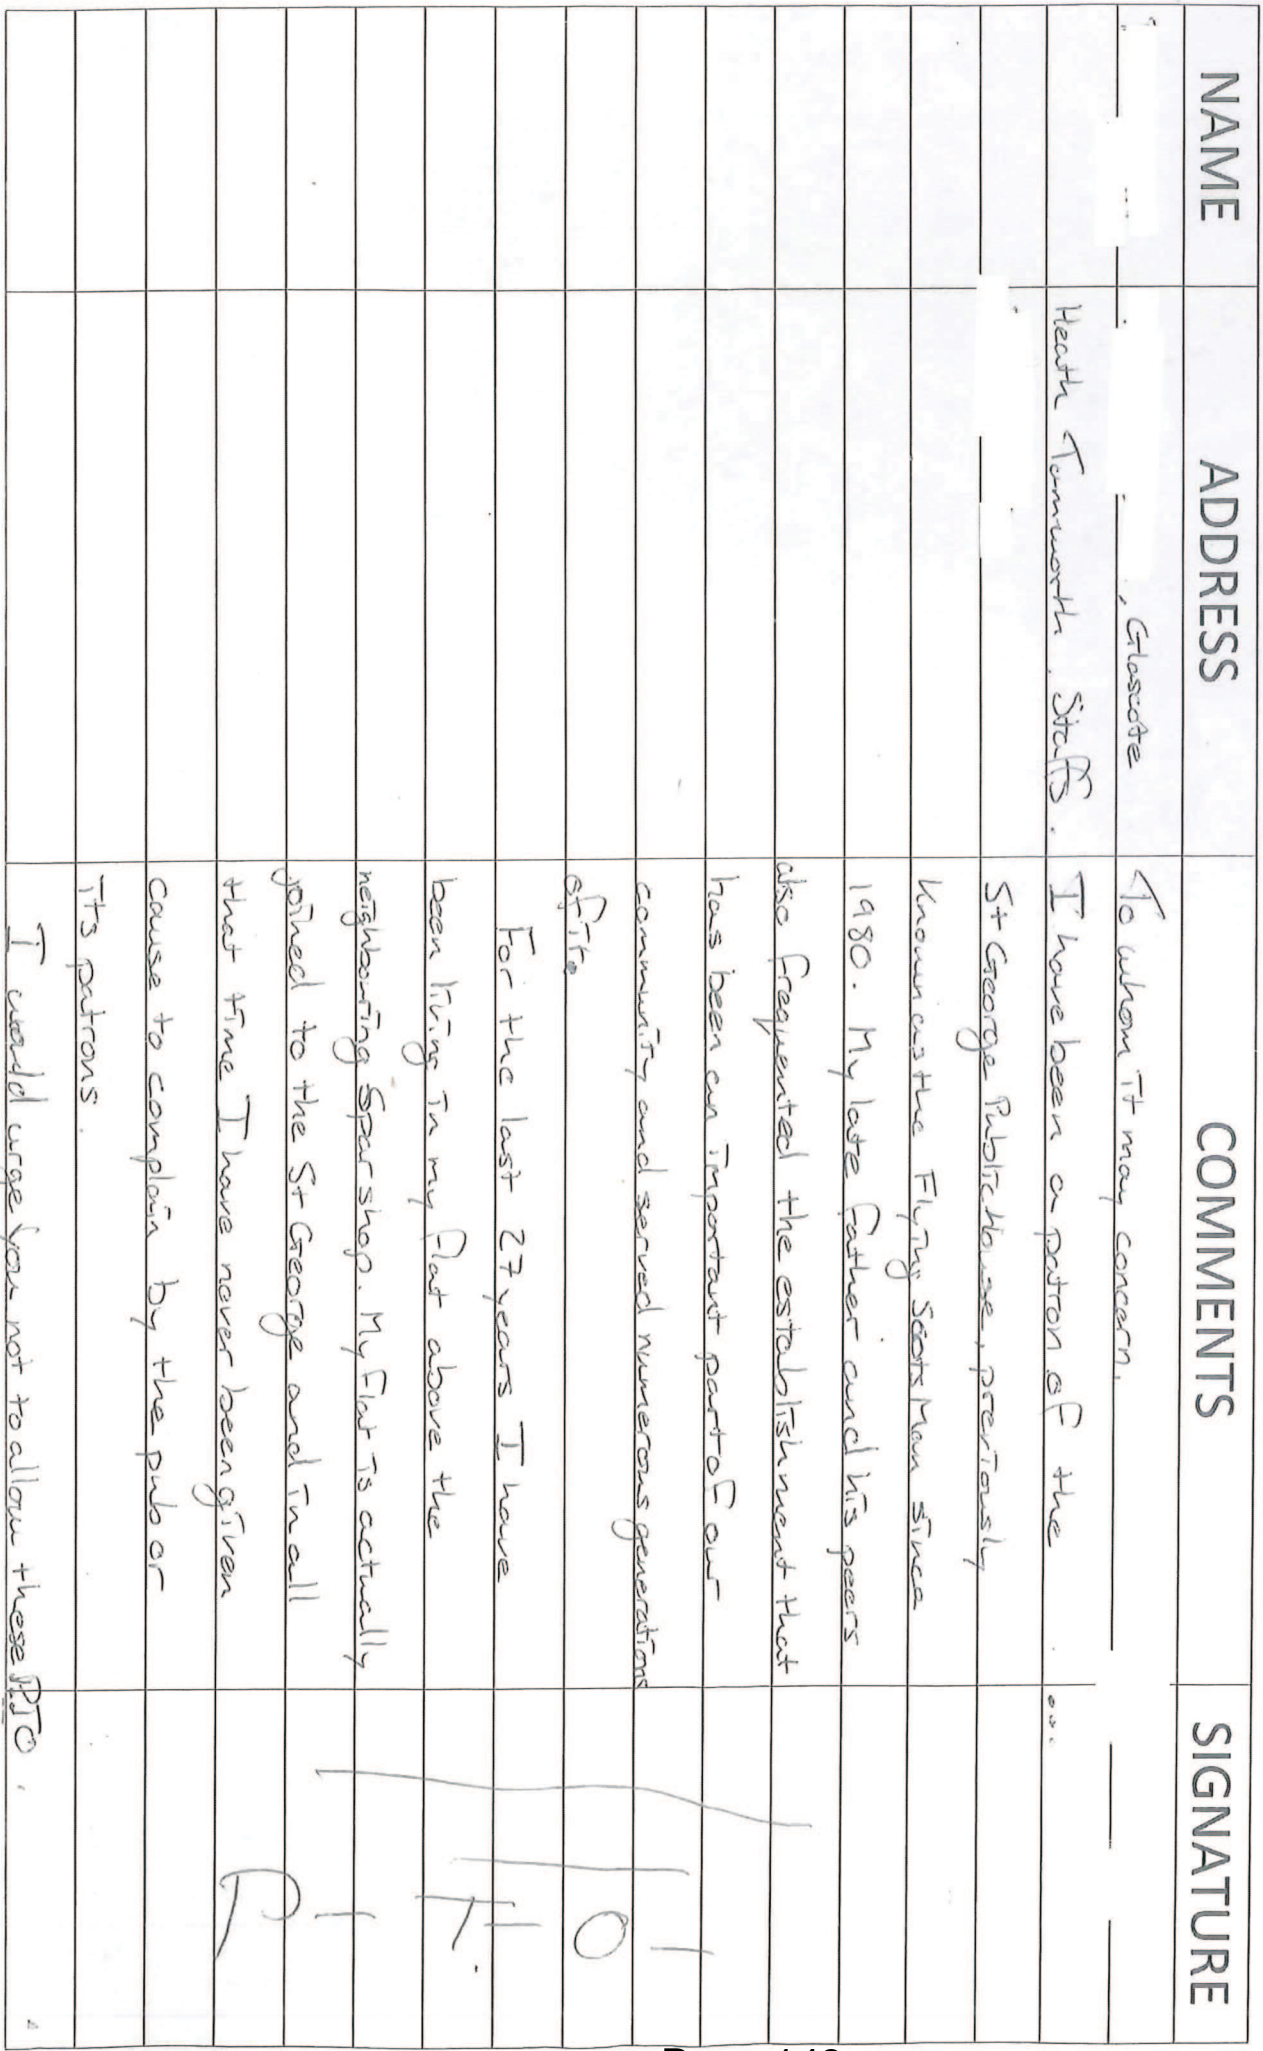 NAME ADDRESS COMMENTS SIGNATURE
, Glascote To whom it may concern,
Heath Tamworth, Staffs. I have been a patron of the
St George Public House, previously
Known as the Flying Scots Man since
1980. My late father and his peers
also frequented the establishment that
has been an important part of our
community and served numerous generations
of it.
For the last 27 years I have
been living in my flat above the
neighbouring Spar shop. My flat is actually
joined to the St George and in all
that time I have never been given
cause to complain by the pub or
its patrons.
I would urge you not to allow these PTO.
P-T-O-